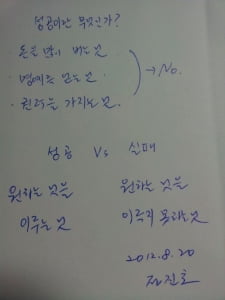 성공이란 무엇인가?
· 돈을 많이 버는 것
· 명예를 얻는 것 → No.
· 권력을 가지는 것.
성공 Vs 실패
원하는 것을 원하는 것을
이루는 것 이루지 못하는 것
2012. 8. 20